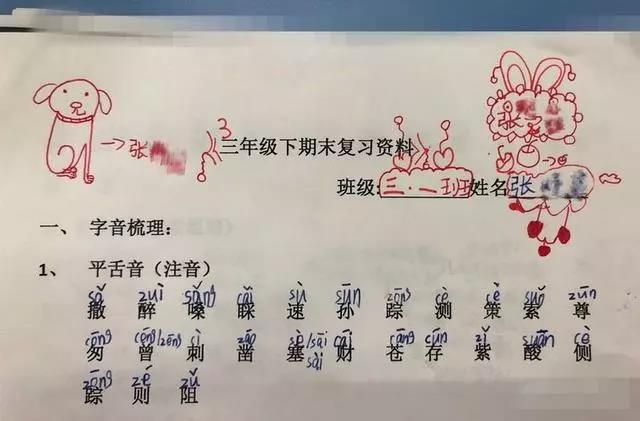 →张
三年级下期末复习资料
张
班级:三·一班姓名张
一、 字音梳理:
1、 平舌音（注音）
sǎ zuì sǎng cǎi sù sūn zōng cè cè suǒ zūn
撒 醉 嗓 睬 速 孙 踪 测 策 索 尊
cōng céng/zēng cì záo sè/sāi/sài cái cāng cún zǐ suān cè
匆 曾 刺 凿 塞 财 苍 存 紫 酸 侧
zōng zé zǔ
踪 则 阻